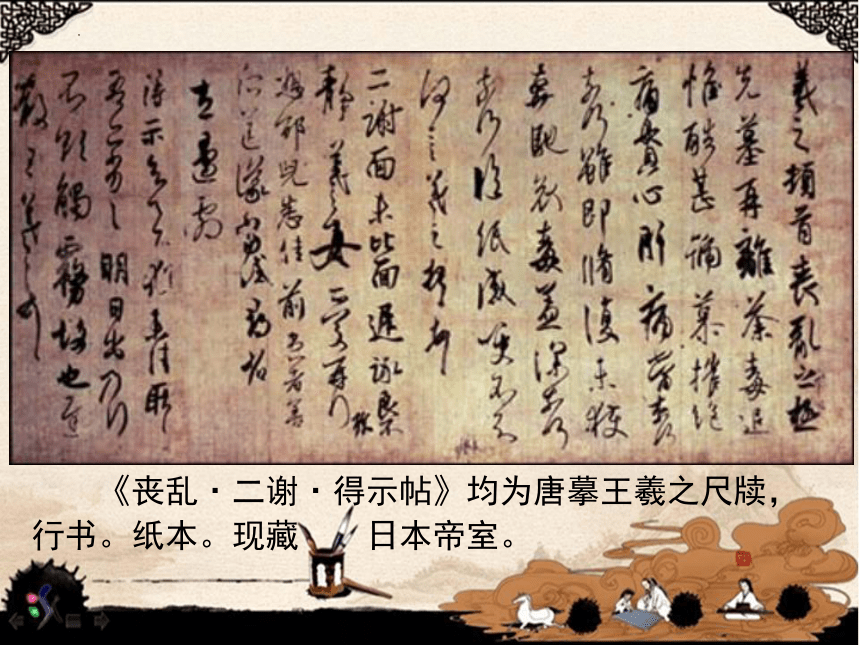 羲之頓首喪亂之極
先墓再離荼毒追
惟酷甚號慕摧絕
痛貫心肝痛當奈何
奈何雖即脩復未獲
奔馳哀毒益深奈何
奈何臨紙感哽不知
何言羲之頓首頓首
二謝面未比面遲詠良不
靜羲之女愛再拜
想邵兒悉佳前患者善
所送議當試尋省
左邊劇
得示知足下猶未佳耿耿
吾亦劣劣明日出乃行
不欲觸霧故也遲
散王羲之頓首
《丧乱·二谢·得示帖》均为唐摹王羲之尺牍，
行书。纸本。现藏 日本帝室。